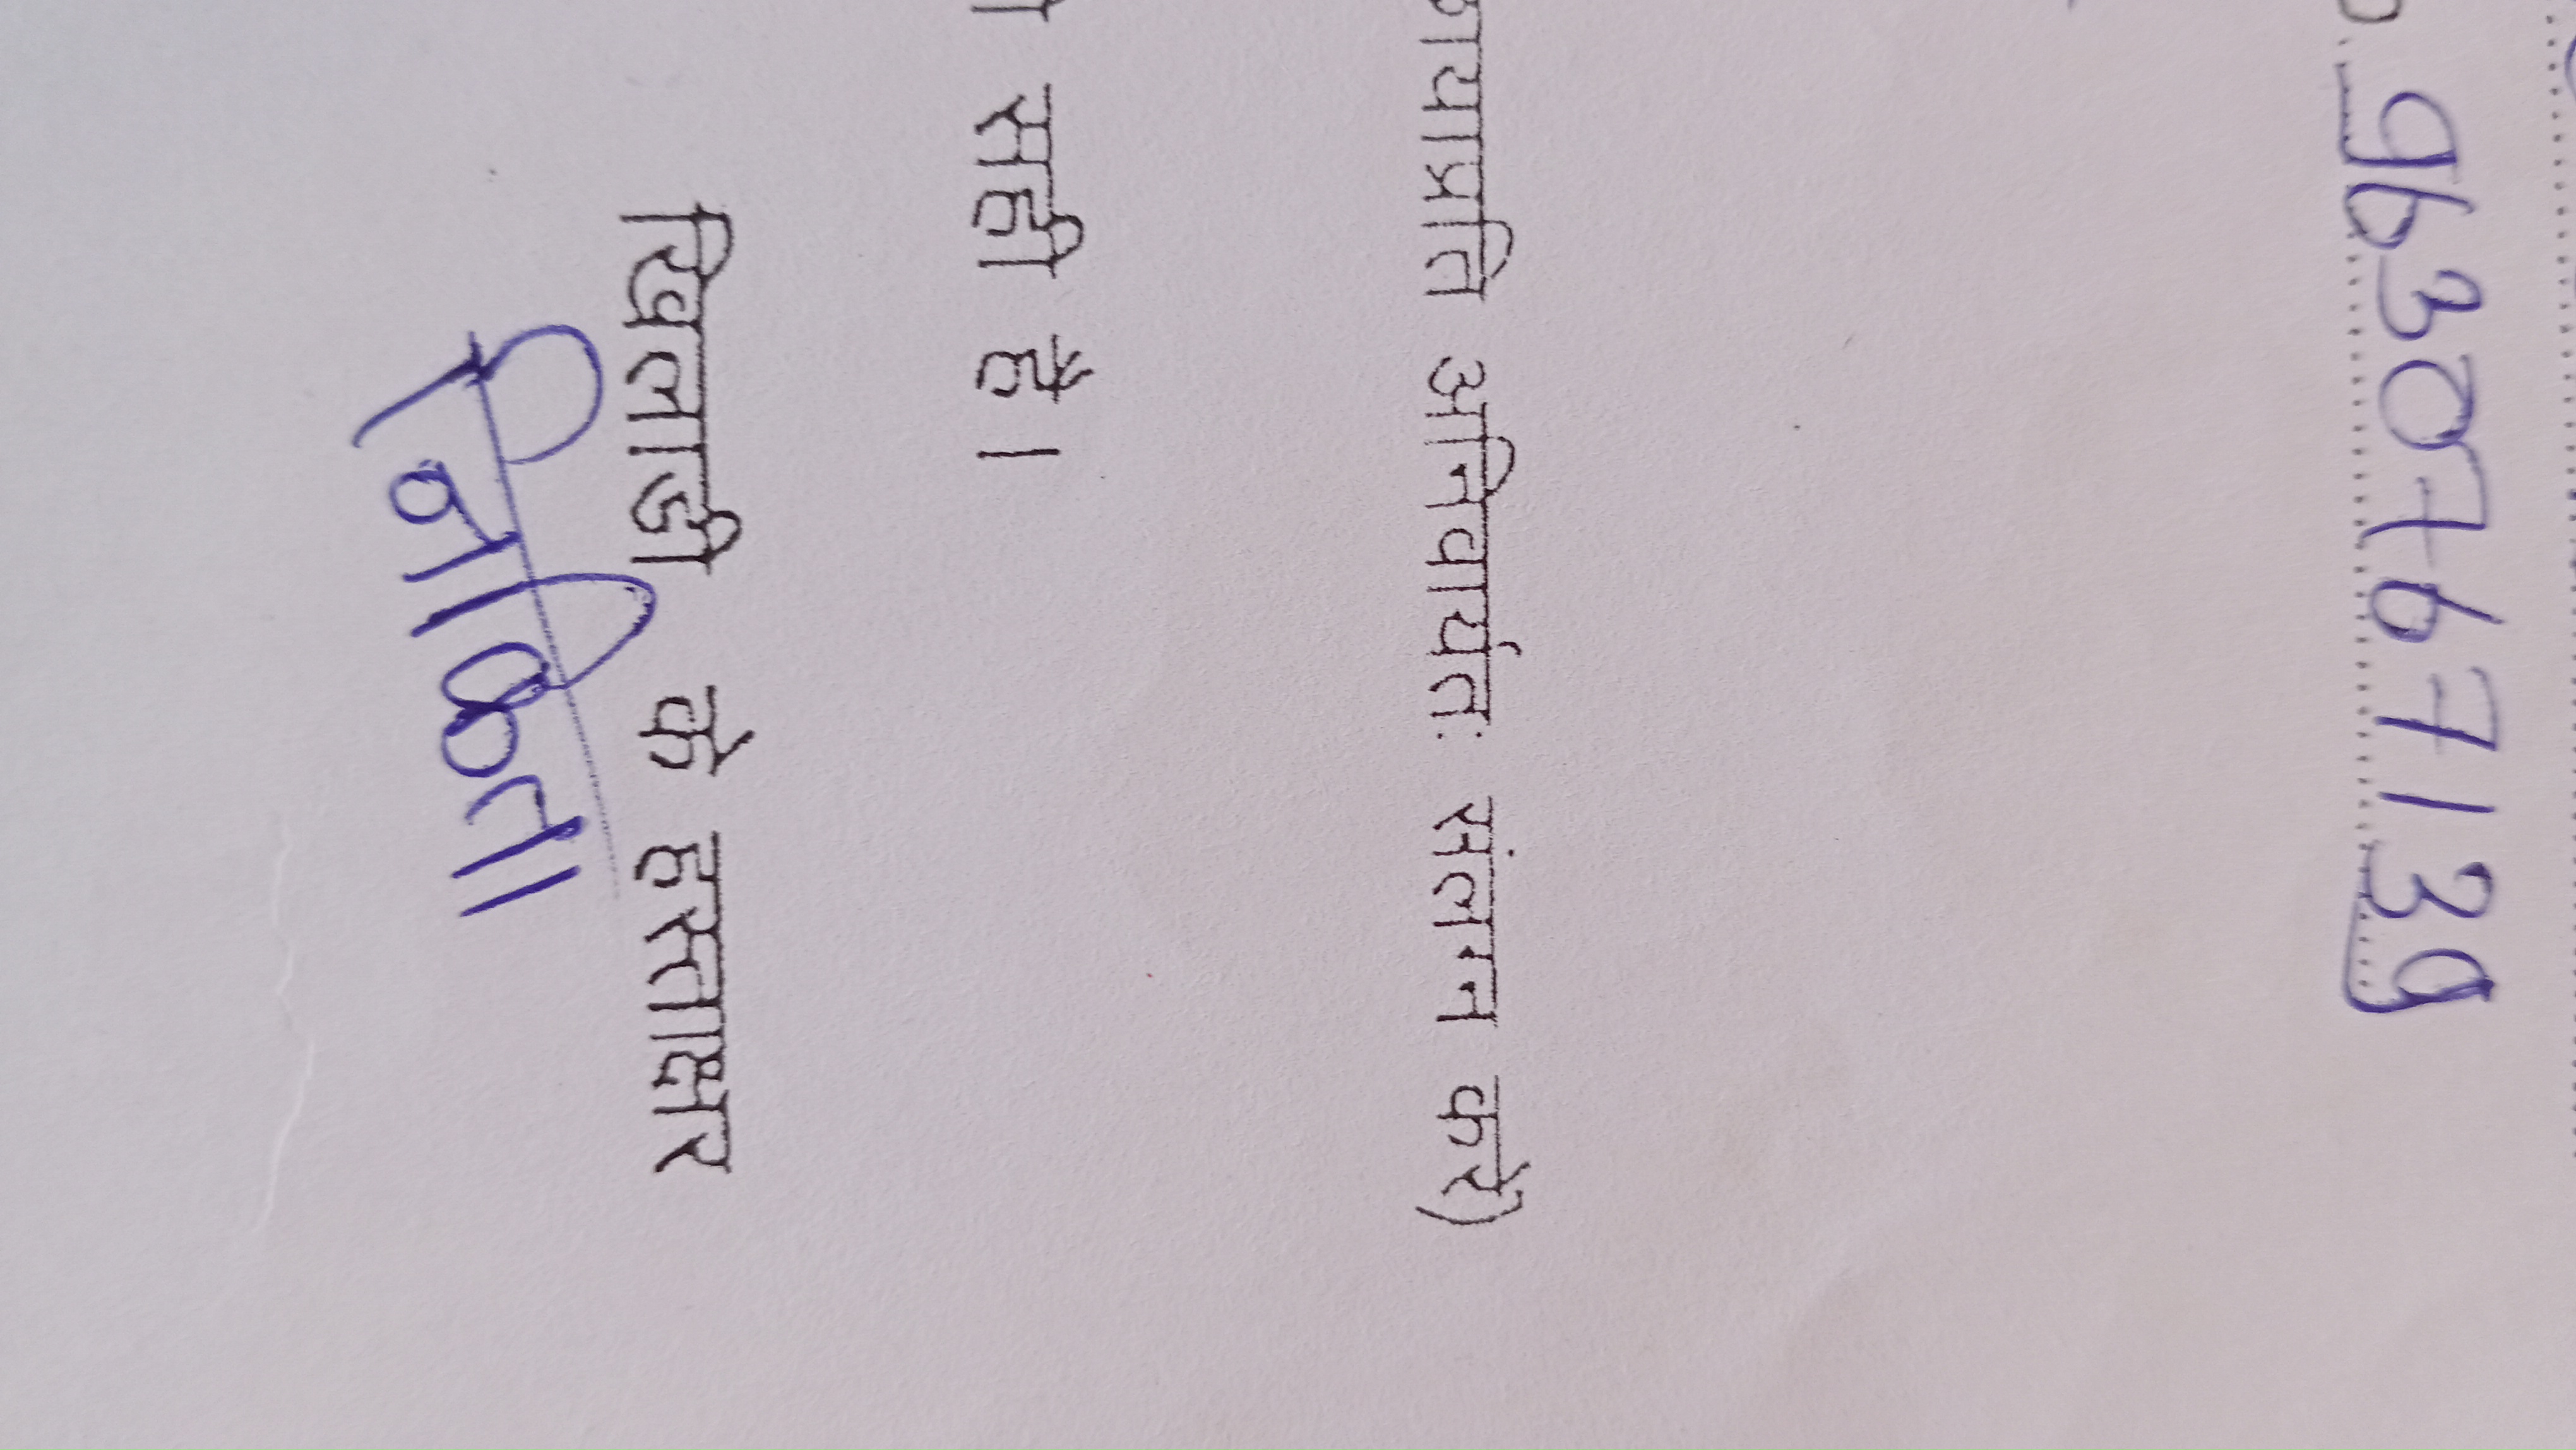 9630767139
छायाप्रति अनिवार्यतः संलग्न करें)
सही है।
खिलाड़ी के हस्ताक्षर
निकिता